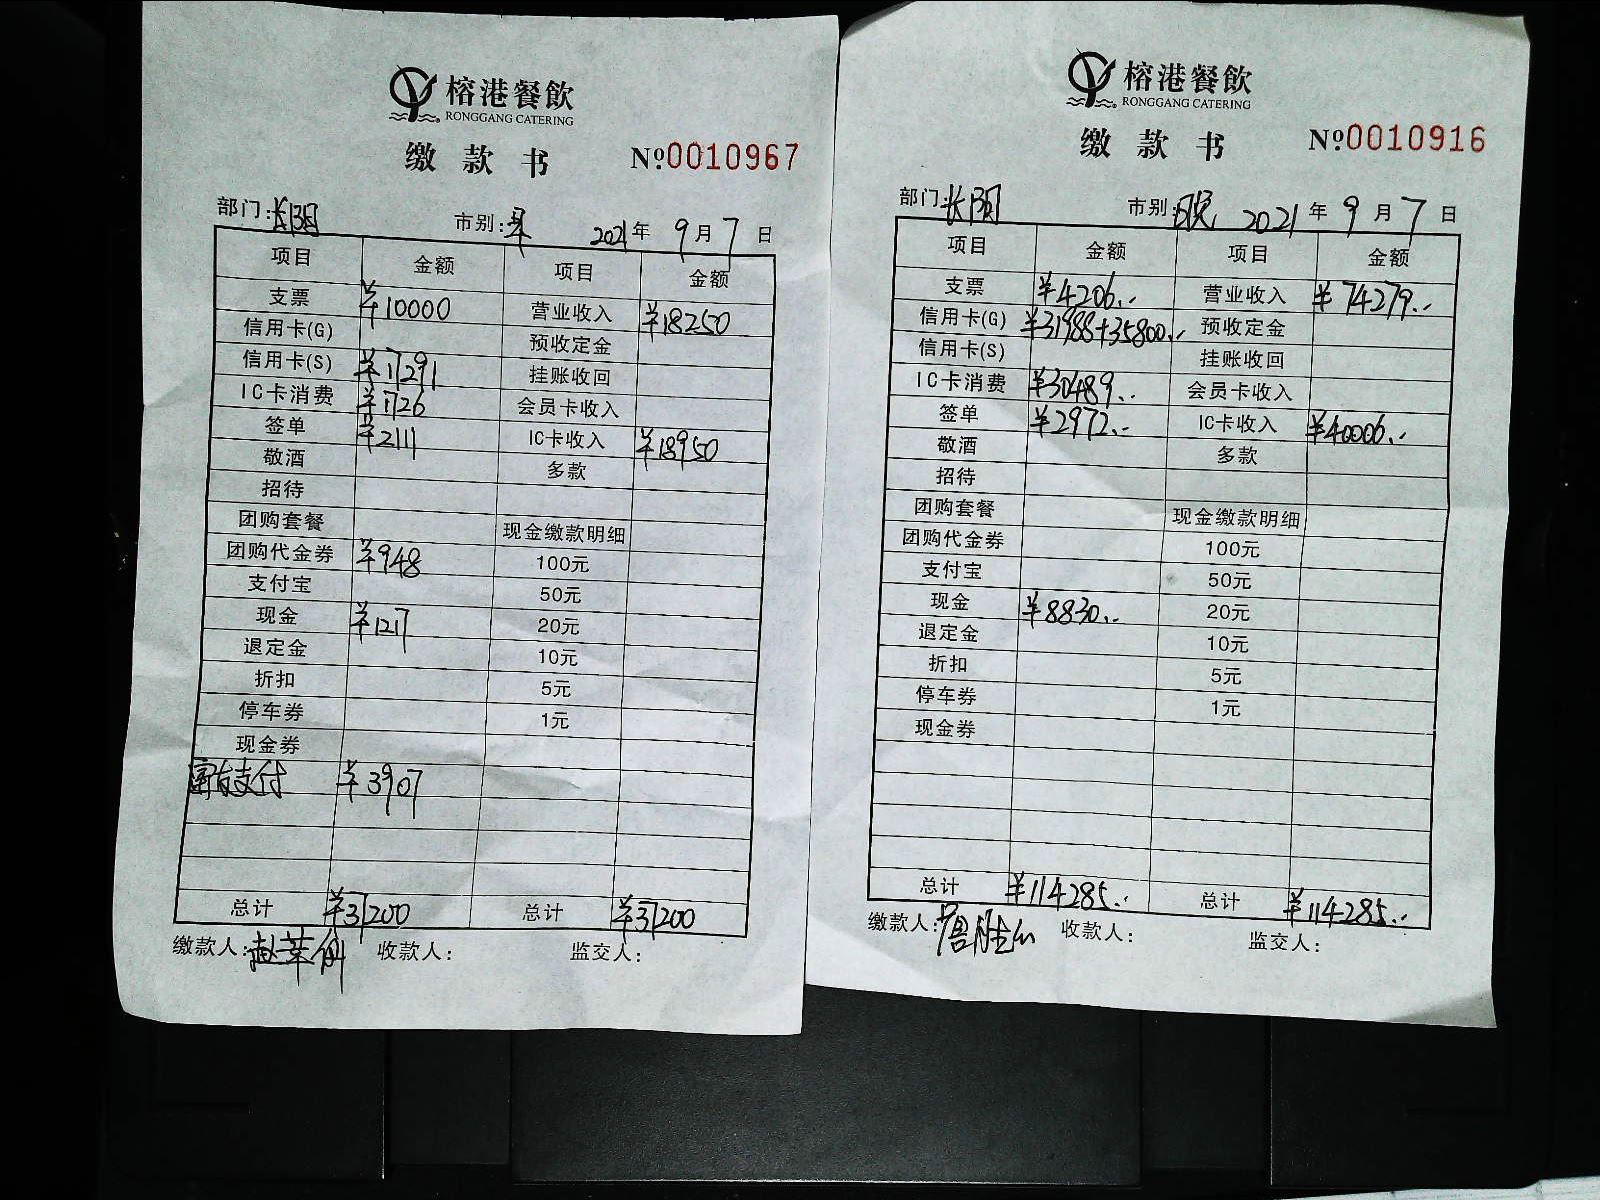 榕港餐飲
RONGGANG CATERING
缴款书 №0010967
部门:长阳 市别:早 2021年9月7日
项目 金额 项目 金额
支票 ¥10000 营业收入 ¥18250
信用卡(G) 预收定金
信用卡(S) ¥17291 挂账收回
IC卡消费 ¥1726 会员卡收入
签单 ¥2111 IC卡收入 ¥18950
敬酒 多款
招待
团购套餐 现金缴款明细
团购代金券 ¥948 100元
支付宝 50元
现金 ¥1217 20元
退定金 10元
折扣 5元
停车券 1元
现金券
富友支付 ¥3907
总计 ¥37200 总计 ¥37200
缴款人: 收款人: 监交人:
榕港餐飲
RONGGANG CATERING
缴款书 №0010916
部门:长阳 市别:晚 2021年9月7日
项目 金额 项目 金额
支票 ¥4206.. 营业收入 ¥74279..
信用卡(G) ¥31988+35800.. 预收定金
信用卡(S) 挂账收回
IC卡消费 ¥30489.. 会员卡收入
签单 ¥2972.. IC卡收入 ¥40006..
敬酒 多款
招待
团购套餐 现金缴款明细
团购代金券 100元
支付宝 50元
现金 ¥8830.. 20元
退定金 10元
折扣 5元
停车券 1元
现金券
总计 ¥114285.. 总计 ¥114285..
缴款人: 收款人: 监交人: